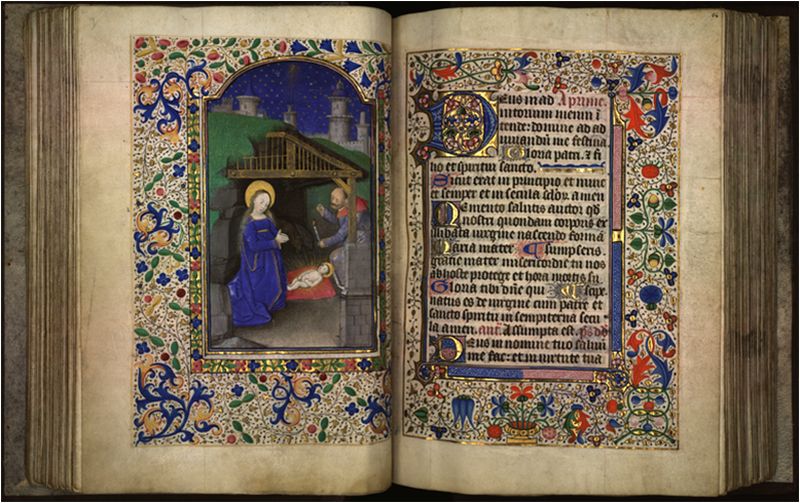 Deus in ad A prime.
iutorium meum i
tende: domine ad ad
iuuandū me festina.
Gloria patri. & fi
lio et spiritui sancto.
Sicut erat in principio et nunc
et semper et in secula sclōꝝ. amen
Memento salutis auctor qđ
nostri quondam corporis ex
illibata uirgine nascendo formā
Maria mater Assumpseris.
gratie mater misericordie tu nos
ab hoste protege et hora mortis su
Gloria tibi dn̄e qui scipe
natus es de uirgine cum patre et
sancto spiritu in sempiterna secu
la amen. ant̄. Assumpta est. ps̄ dd
Deus in nomine tuo saluū
me fac: et in uirtute tua